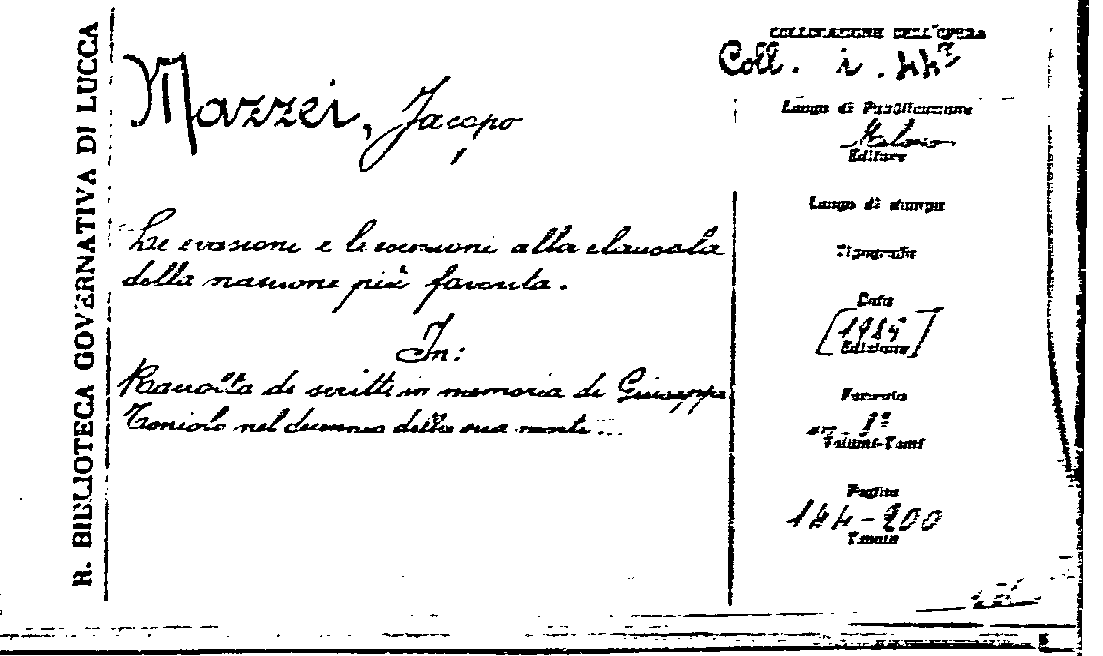 R. BIBLIOTECA GOVERNATIVA DI LUCCA
Mazzei, Jacopo
Le evasioni e le eccezioni alla clausola
della nazione più favorita.
In:
Raccolta di scritti in memoria di Giuseppe
Toniolo nel decennio della sua morte...
COLLOCAZIONE DELL'OPERA
Coll. i. 44
Luogo di Pubblicazione
Milano
Editore
Luogo di stampa
Tipografo
Data
Edizione
Formato
Volumi-Tomi
Pagine
144-200
Tavole